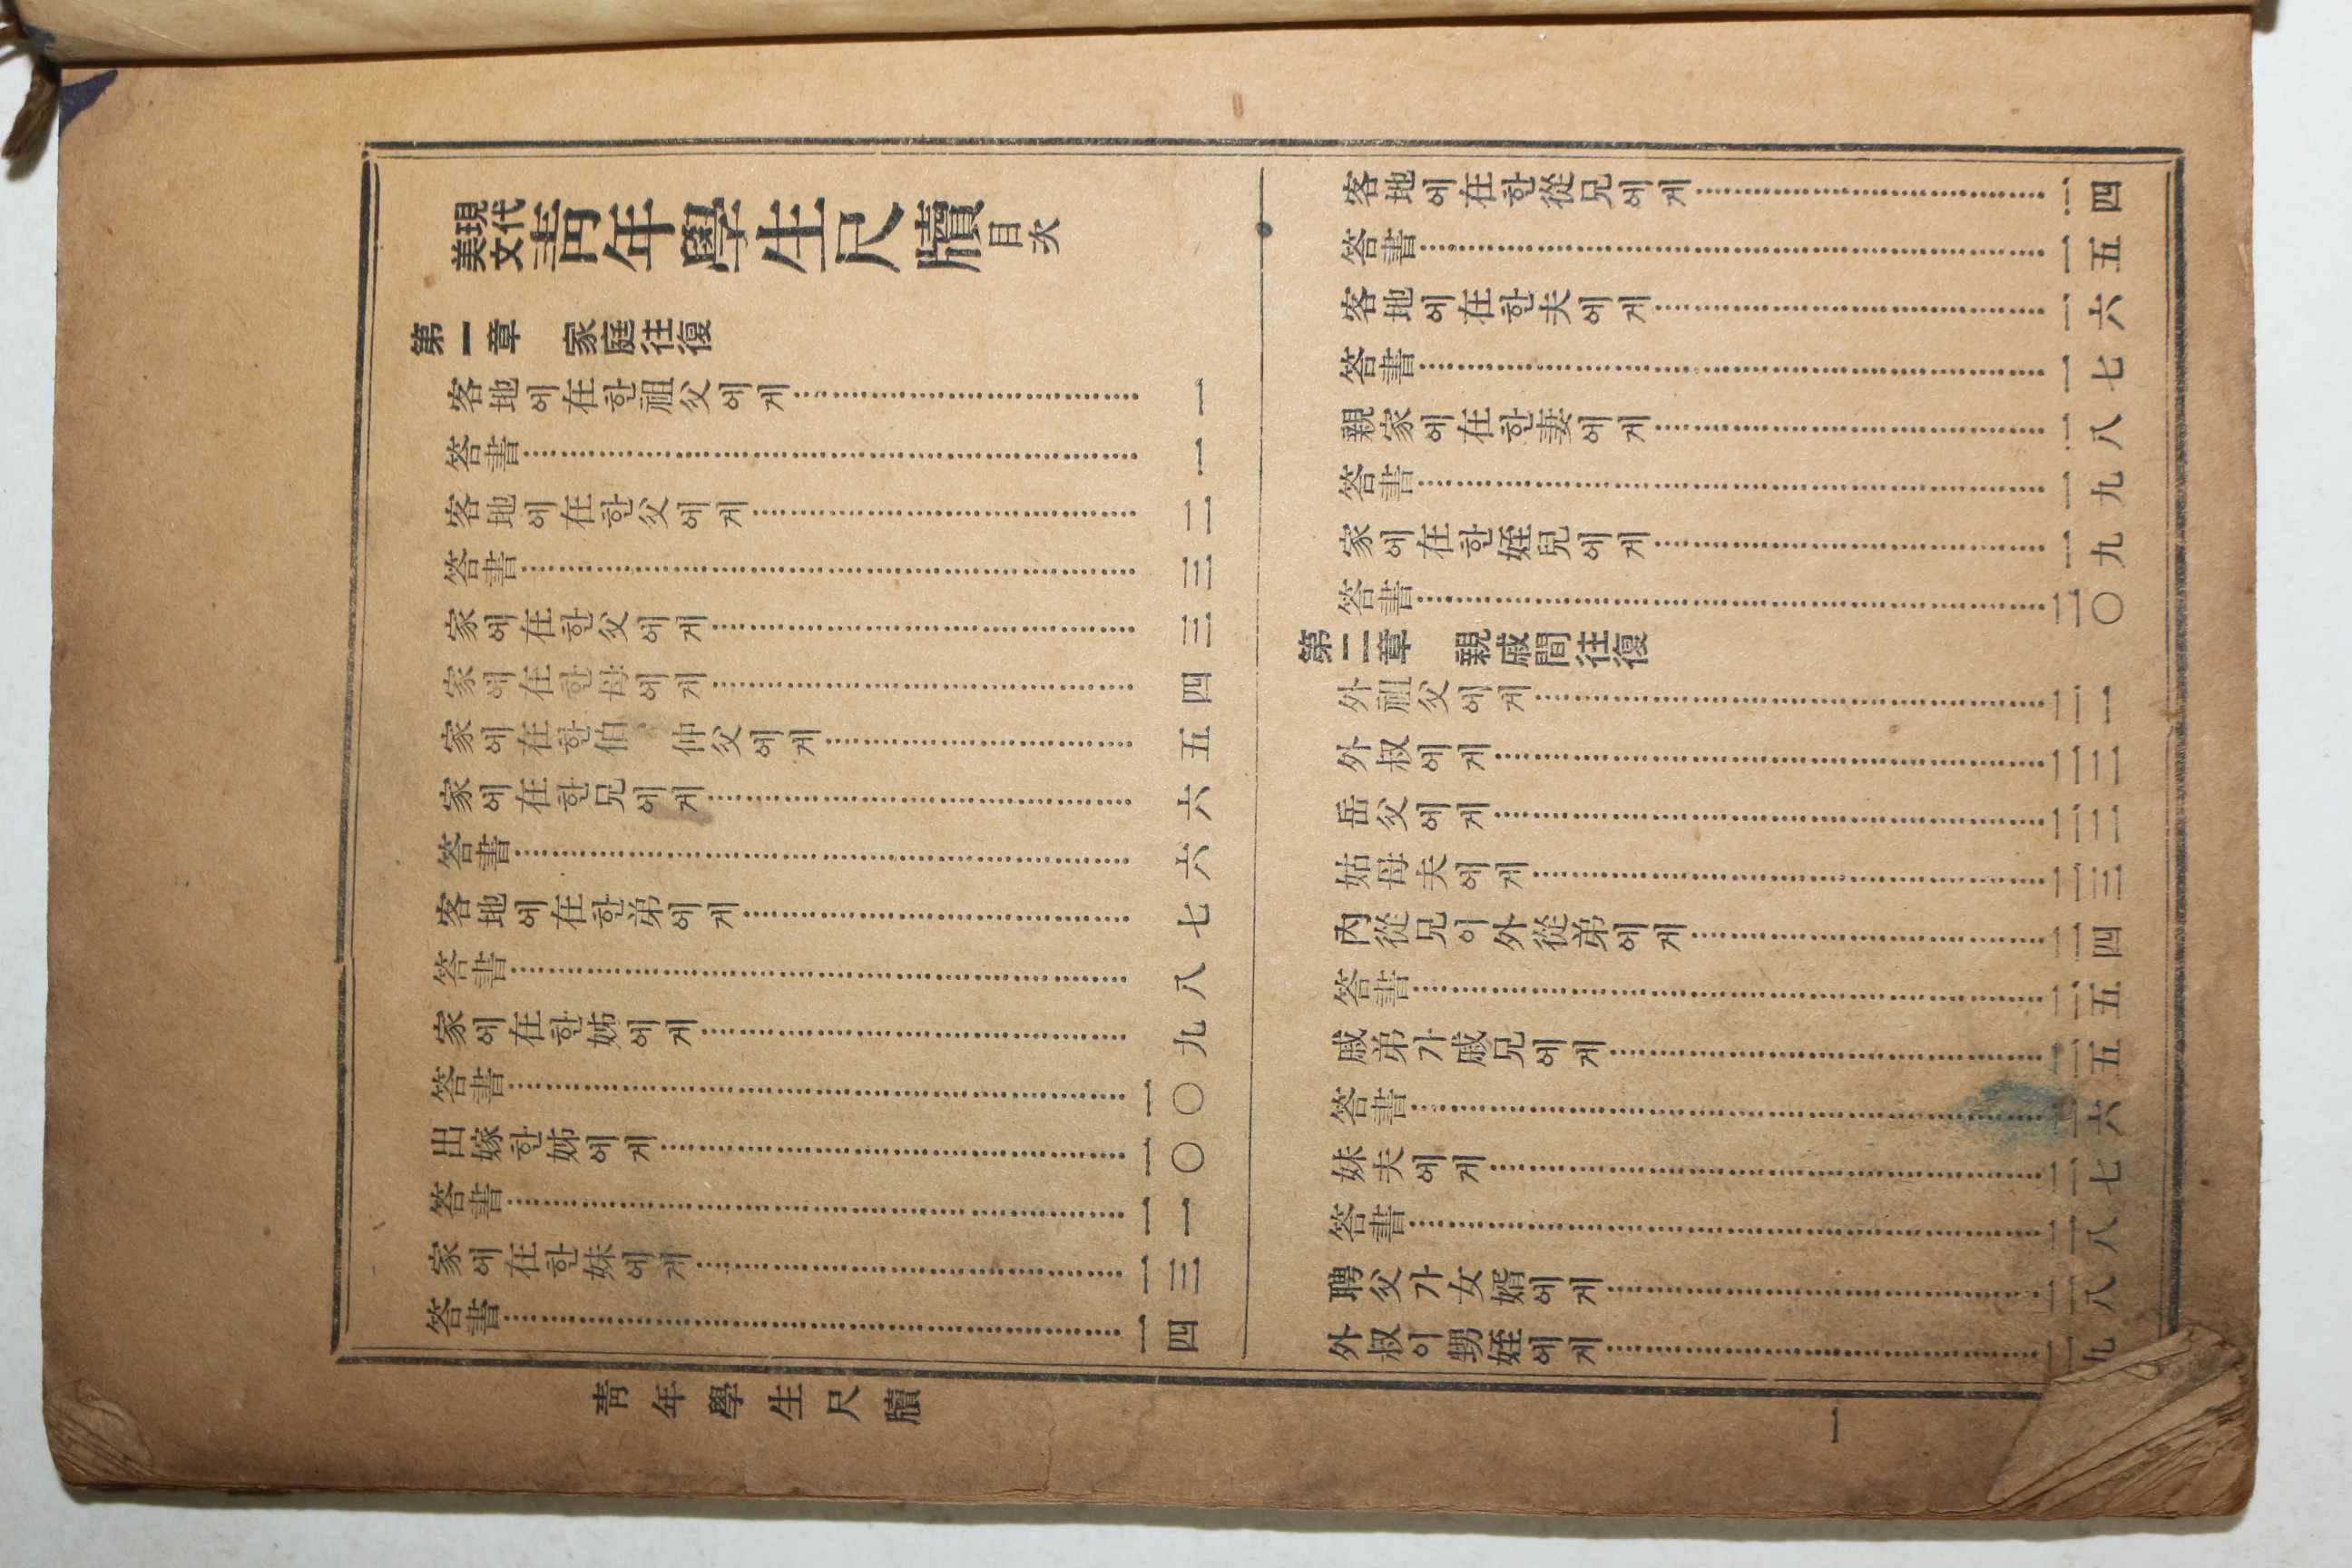 現代美文 靑年學生尺牘 目次
第一章 家庭往復
客地에在한祖父에게……一
答書……一
客地에在한父에게……二
答書……三
家에在한父에게……三
家에在한母에게……四
家에在한伯、仲父에게……五
家에在한兄에게……六
答書……六
客地에在한弟에게……七
答書……八
家에在한姊에게……九
答書……一〇
出嫁한姊에게……一〇
答書……一一
家에在한妹에게……一三
答書……一四
客地에在한從兄에게……一四
答書……一五
客地에在한夫에게……一六
答書……一七
親家에在한妻에게……一八
答書……一九
家에在한姪兒에게……一九
答書……二〇
第二章 親戚間往復
外祖父에게……二一
外叔에게……二二
岳父에게……二二
姑母夫에게……二三
內從兄이外從弟에게……二四
答書……二五
戚弟가戚兄에게……二五
答書……二六
妹夫에게……二七
答書……二八
聘父가女婿에게……二八
外叔이甥姪에게……二九
靑年學生尺牘
一